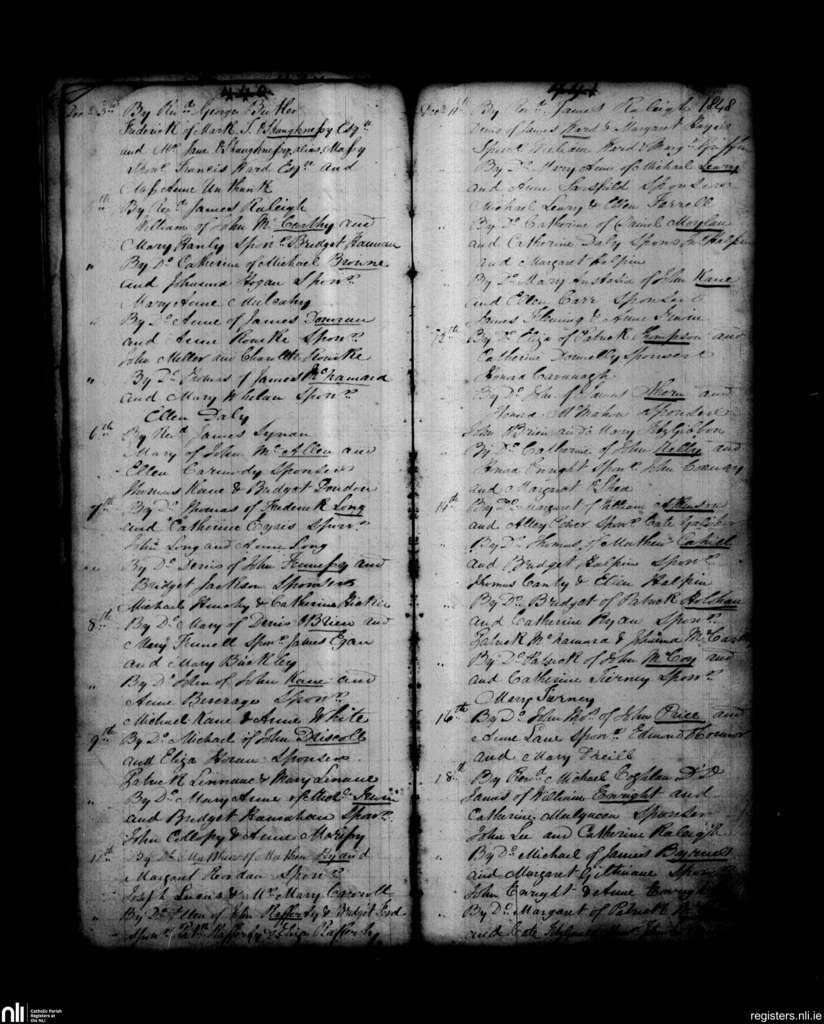 440
Dec. 3rd By Revd. George Butler
Frederick of Mark S. OShaughnessy Esqr.
and Mrs. Jane OShaughnessy, alias Massy
Sponrs. Francis Ward Esqr. and
Miss Anne Unthank
By Revd. James Raleigh
William of John McCarthy and
Mary Ranly Sponrs. Bridget
" By Do. Catherine of Michael Browne
and Johanna Hogan Sponrs.
Mary Anne Mulcahy
" By Do. Anne of James
and Anne Rourke Sponrs.
John Meller and Charlotte Rourke
" By Do. Thomas of James McNamara
and Mary Whelan Sponrs.
Ellen Daly
6th By Revd. James Synan
Mary of John McAllen and
Ellen Carmody Sponsers
Thomas Kane & Bridget Dondon
7th By Do. Thomas of Frederick Long
and Catherine Eyres Sponrs.
John Long and Anne Long
" By Do. Denis of John Hennessy and
Bridget Jackson Sponsers
Michael & Catherine Hickie
8th By Do. Mary of Denis OBrien and
Mary Sponrs. James Egan
and Mary Buckley
" By Do. John of John Kane and
Anne Beverage Sponrs.
Michael Kane & Anne White
9th By Do. Michael of John Driscoll
and Eliza Sponsers
Patrick Linnane & Mary Linnane
" By Do. Mary Anne of Irwin
and Bridget Hanrahan Sponrs.
John Collopy & Anne
By Do. Mathew of Mathew Ryan
Margaret Riordan Sponrs.
Joseph & Mrs. Mary Carroll
" By Do. Ellen of John Rafferty & Bridget
Sponrs. Patk. Rafferty & Eliza Rafferty
441
Decr. 11th By Revd. James Raleigh 1848
Denis of James Ward & Margaret
Sponrs. William Ward & Margt. Griffin
By Do. Mary Anne of Michael Leary
and Anne Sarsfield Sponsers
Michael Leary & Ellen Farrell
" By Do. Catherine of Daniel Moylan
and Catherine Daly Sponrs. Halpin
and Margaret Halpin
" By Do. Mary Anstatia of John Kane
and Ellen Carr Sponsers
James Fleming & Anne Irwin
12th By Do. Eliza of Patrick Thompson and
Catherine Donnelly Sponsers
Honora Cavanagh
By Do. John of James Ahern and
Honora McMahon Sponsers
John OBrien and Mary FitzGibbon
" By Do. Catherine of John Kelly and
Honora Enright Sponrs. John Conway
and Margaret OShea
14th By Do. Margaret of William Atkinson
and Alley Sponrs. Cate
" By Do. Thomas of Mathew Cahill
and Bridget Halpin Sponrs.
Thomas Canty & Ellen Halpin
" By Do. Bridget of Patrick Holohan
and Catherine Ryan Sponrs.
Patrick McNamara & Johanna McCarthy
" By Do. Patrick of John McCoy and
and Catherine Tierney Sponrs.
Mary Tierney
16th By Do. John Thos. of John Price and
Anne Lane Sponrs. Edmund OConnor
and Mary ONeill
18th By Revd. Michael Coghlan D.D.
James of William Enright and
Catherine Mulqueen Sponsers
John Lee and Catherine Raleigh
" By Do. Michael of James Byrnes
and Margaret Gilthnane Sponrs.
John Enright & Anne Enright
" By Do. Margaret of Patrick
and Cate
nli Catholic Parish
Registers at
the NLI
registers.nli.ie